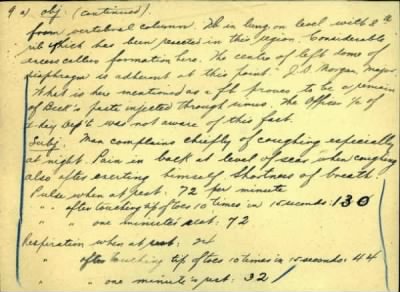 9 a) obj. (continued).
from vertebral column. Fb in lung on level with 8th
rib which has been resected in this region. Considerable
excess callus formation here. The centre of left dome of
diaphragm is adherent at this point. J.D. Morgan, Major.
What is here mentioned as a fb proves to be a remain
of Beck's paste injected through sinus. The Officer i/c of
X-Ray Dep't was not aware of this fact.
Subj. Man complains chiefly of coughing especially
at night. Pain in back at level of scar when coughing
also after exerting himself. Shortness of breath.
Pulse when at rest: 72 per minute
" after touching tip of toes 10 times in 15 seconds: 130
" " one minute's rest: 72
Respiration when at rest: 24
" after touching tip of toes 10 times in 15 seconds: 44
" " one minute's rest: 32